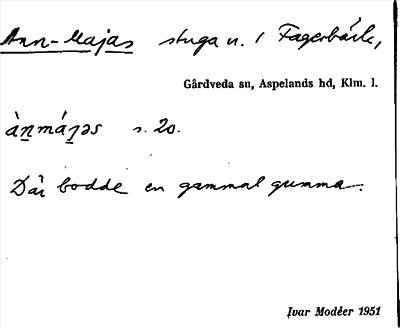 Ann-Majas stuga u. / Fagerbäck,
Gårdveda sn, Aspelands hd, Klm. l.
s. 20.
Där bodde en gammal gumma.
Ivar Modéer 1951